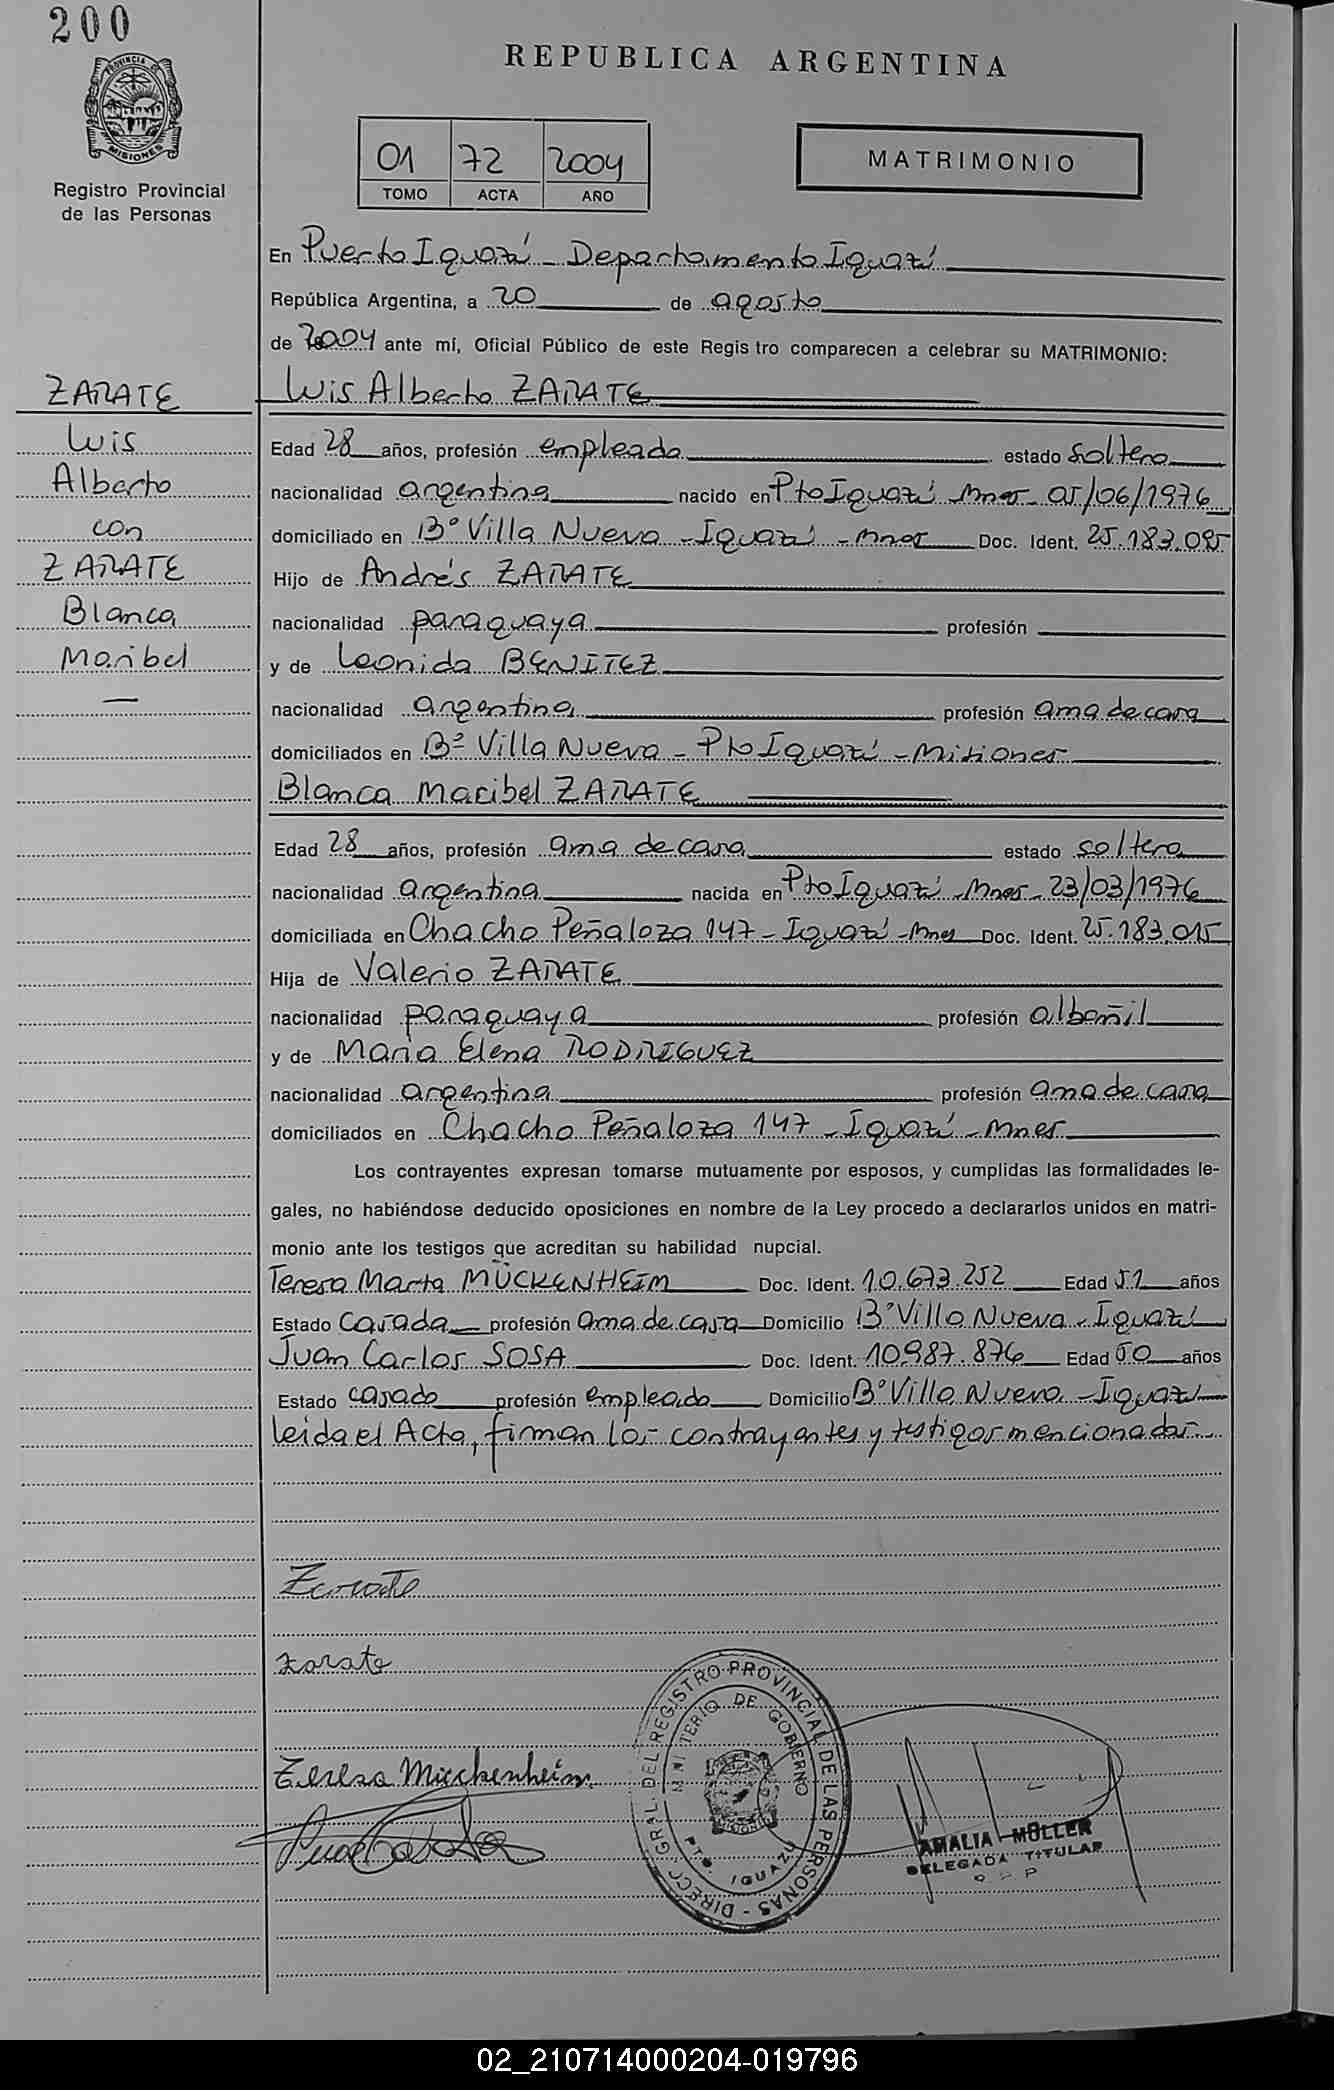 200
PROVINCIA DE
MISIONES
Registro Provincial
de las Personas
REPUBLICA ARGENTINA
01 72 2004
TOMO ACTA AÑO
MATRIMONIO
En Puerto Iguazú - Departamento Iguazú
República Argentina, a 20 de agosto
de 2004 ante mí, Oficial Público de este Regis tro comparecen a celebrar su MATRIMONIO:
ZARATE
Luis
Alberto
con
ZARATE
Blanca
Maribel
Luis Alberto ZARATE
Edad 28 años, profesión empleado estado soltero
nacionalidad argentina nacido en Pto Iguazú Mnes - 05/06/1976
domiciliado en Bº Villa Nueva - Iguazú - Mnes Doc. Ident. 25.183.095
Hijo de Andrés ZARATE
nacionalidad paraguaya profesión
y de Leonida BENITEZ
nacionalidad argentina profesión ama de casa
domiciliados en Bº Villa Nueva - Pto Iguazú - Misiones
Blanca Maribel ZARATE
Edad 28 años, profesión ama de casa estado soltera
nacionalidad argentina nacida en Pto Iguazú - Mnes - 23/03/1976
domiciliada en Chacho Peñaloza 147 - Iguazú - Mnes Doc. Ident. 25.183.015
Hija de Valerio ZARATE
nacionalidad paraguaya profesión albañil
y de Maria Elena RODRIGUEZ
nacionalidad argentina profesión ama de casa
domiciliados en Chacho Peñaloza 147 - Iguazú - Mnes
Los contrayentes expresan tomarse mutuamente por esposos, y cumplidas las formalidades le-
gales, no habiéndose deducido oposiciones en nombre de la Ley procedo a declararlos unidos en matri-
monio ante los testigos que acreditan su habilidad nupcial.
Teresa Marta MÜCKENHEIM Doc. Ident. 10.673.252 Edad 51 años
Estado casada profesión ama de casa Domicilio Bº Villa Nueva - Iguazú
Juan Carlos SOSA Doc. Ident. 10.987.876 Edad 50 años
Estado casado profesión empleado Domicilio Bº Villa Nueva - Iguazú
leida el Acta, firman los contrayentes y testigos mencionados
Zarate
zarate
Teresa Mückenheim
DIRECC. GRAL. DEL REGISTRO PROVINCIAL DE LAS PERSONAS -
MINISTERIO DE GOBIERNO
MISIONES
PTO. IGUAZU
AMALIA MÜLLER
DELEGADA TITULAR
02_210714000204-019796